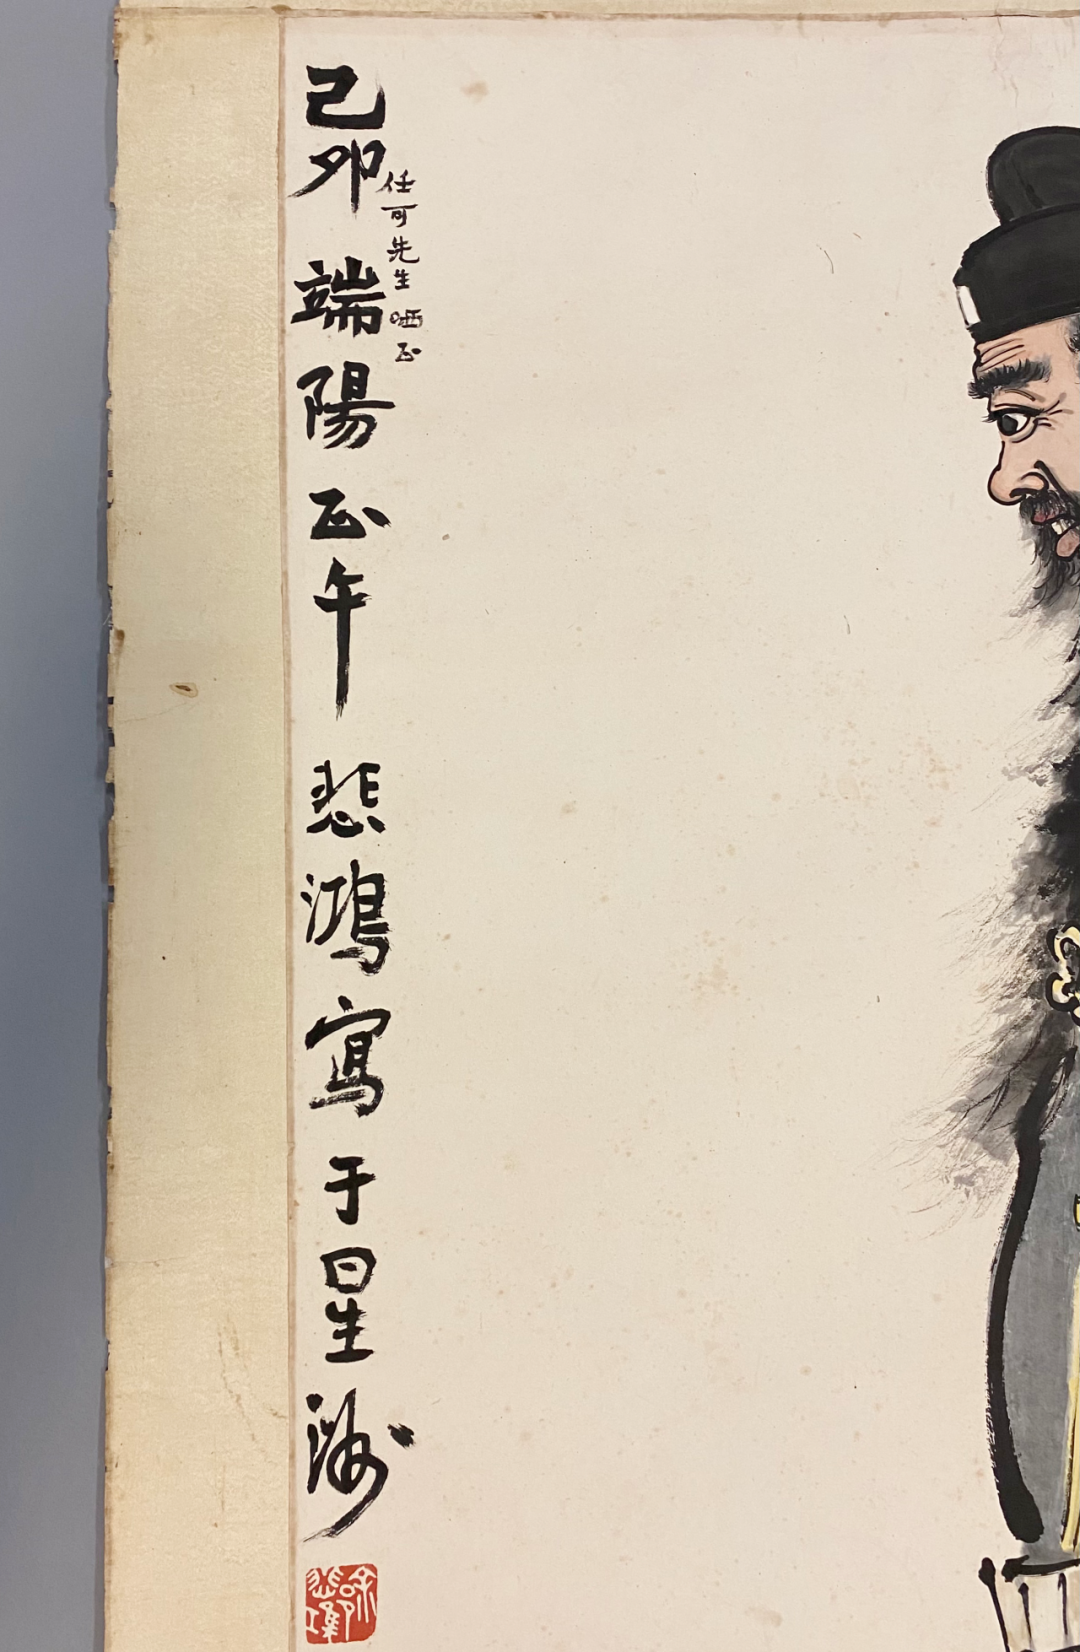 任可先生 哂正
己卯 端陽 正午 悲鴻寫于星洲